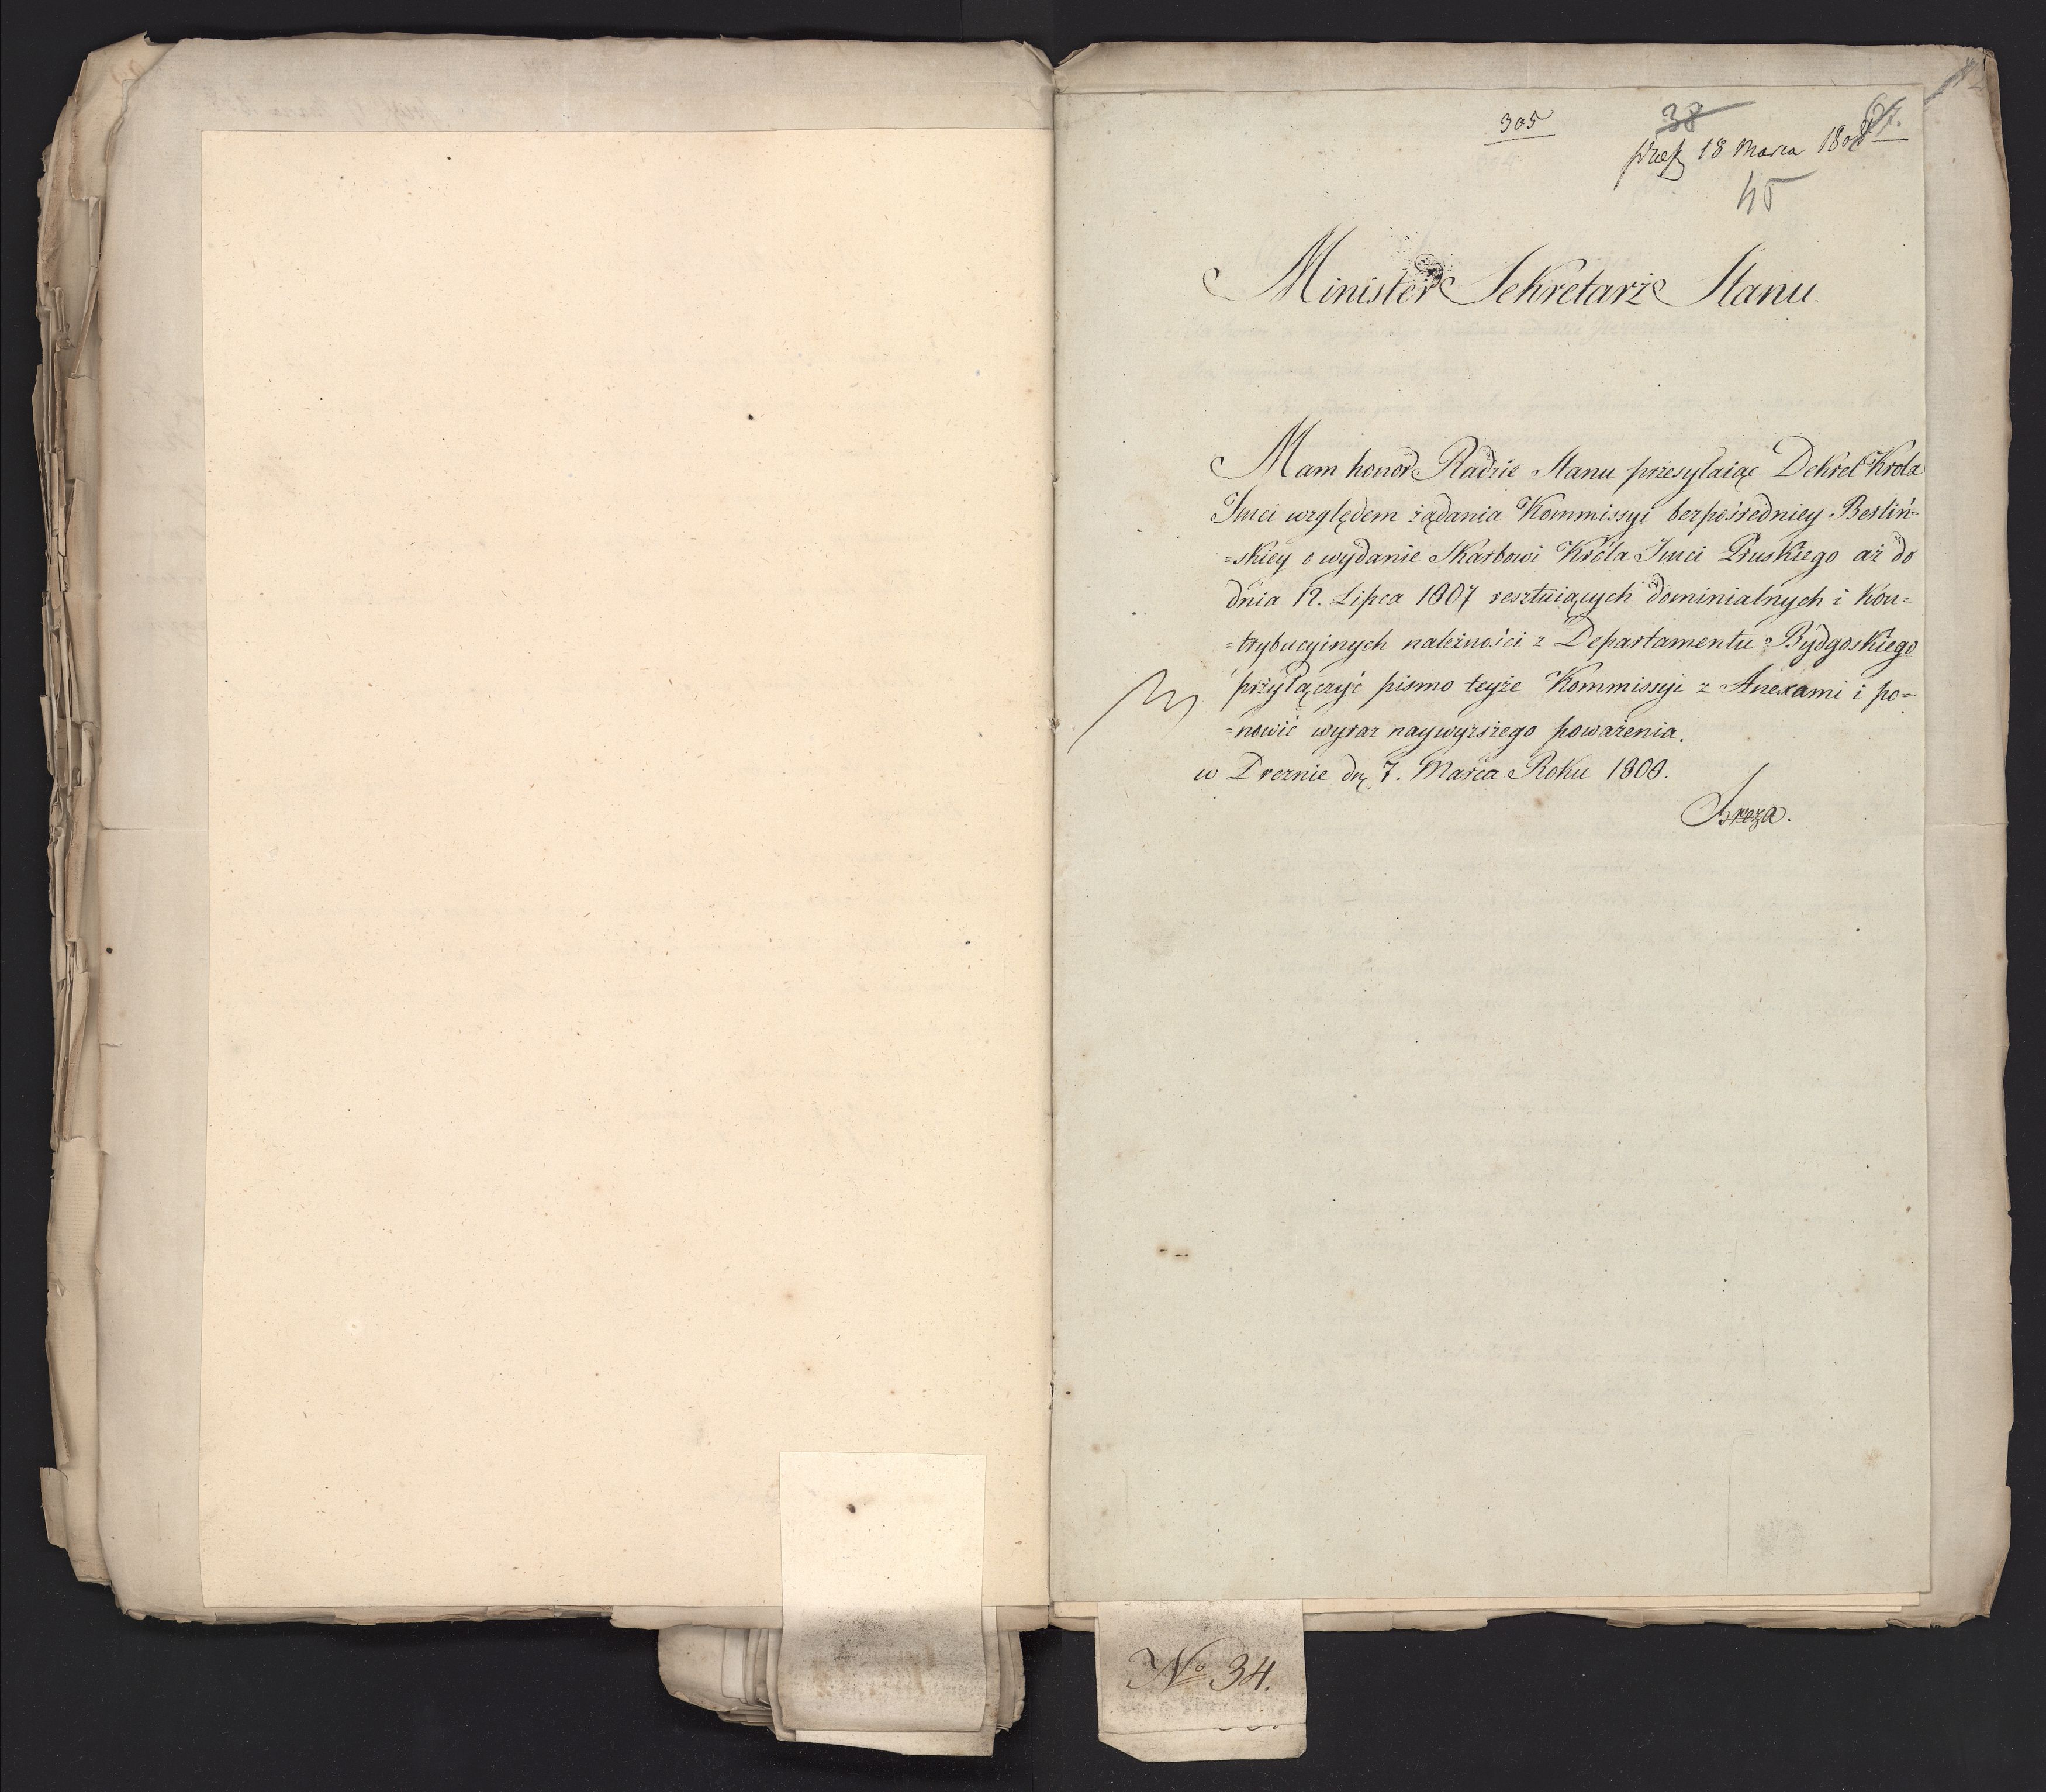 305
38
67.
praes 18 Marca 1808
45
Minister Sekretarz Stanu
Mam honor Radzie Stanu przesyłaiąc Dekret Króla
Jmci względem żądania Kommissyi bezpośredniey Berliń=
=skiey o wydanie Skarbowi Króla Jmci Pruskiego aż do
dnia 12. Lipca 1807 resztuiących dominialnych i Kon=
=trybucyinych należności z Departamentu Bydgoskiego
przyłączyć pismo teyże Kommissyi z Anexami i po=
=nowić wyraz naywyższego poważenia.
w Dreznie dn. 7. Marca Roku 1808.
Breza.
No 34.